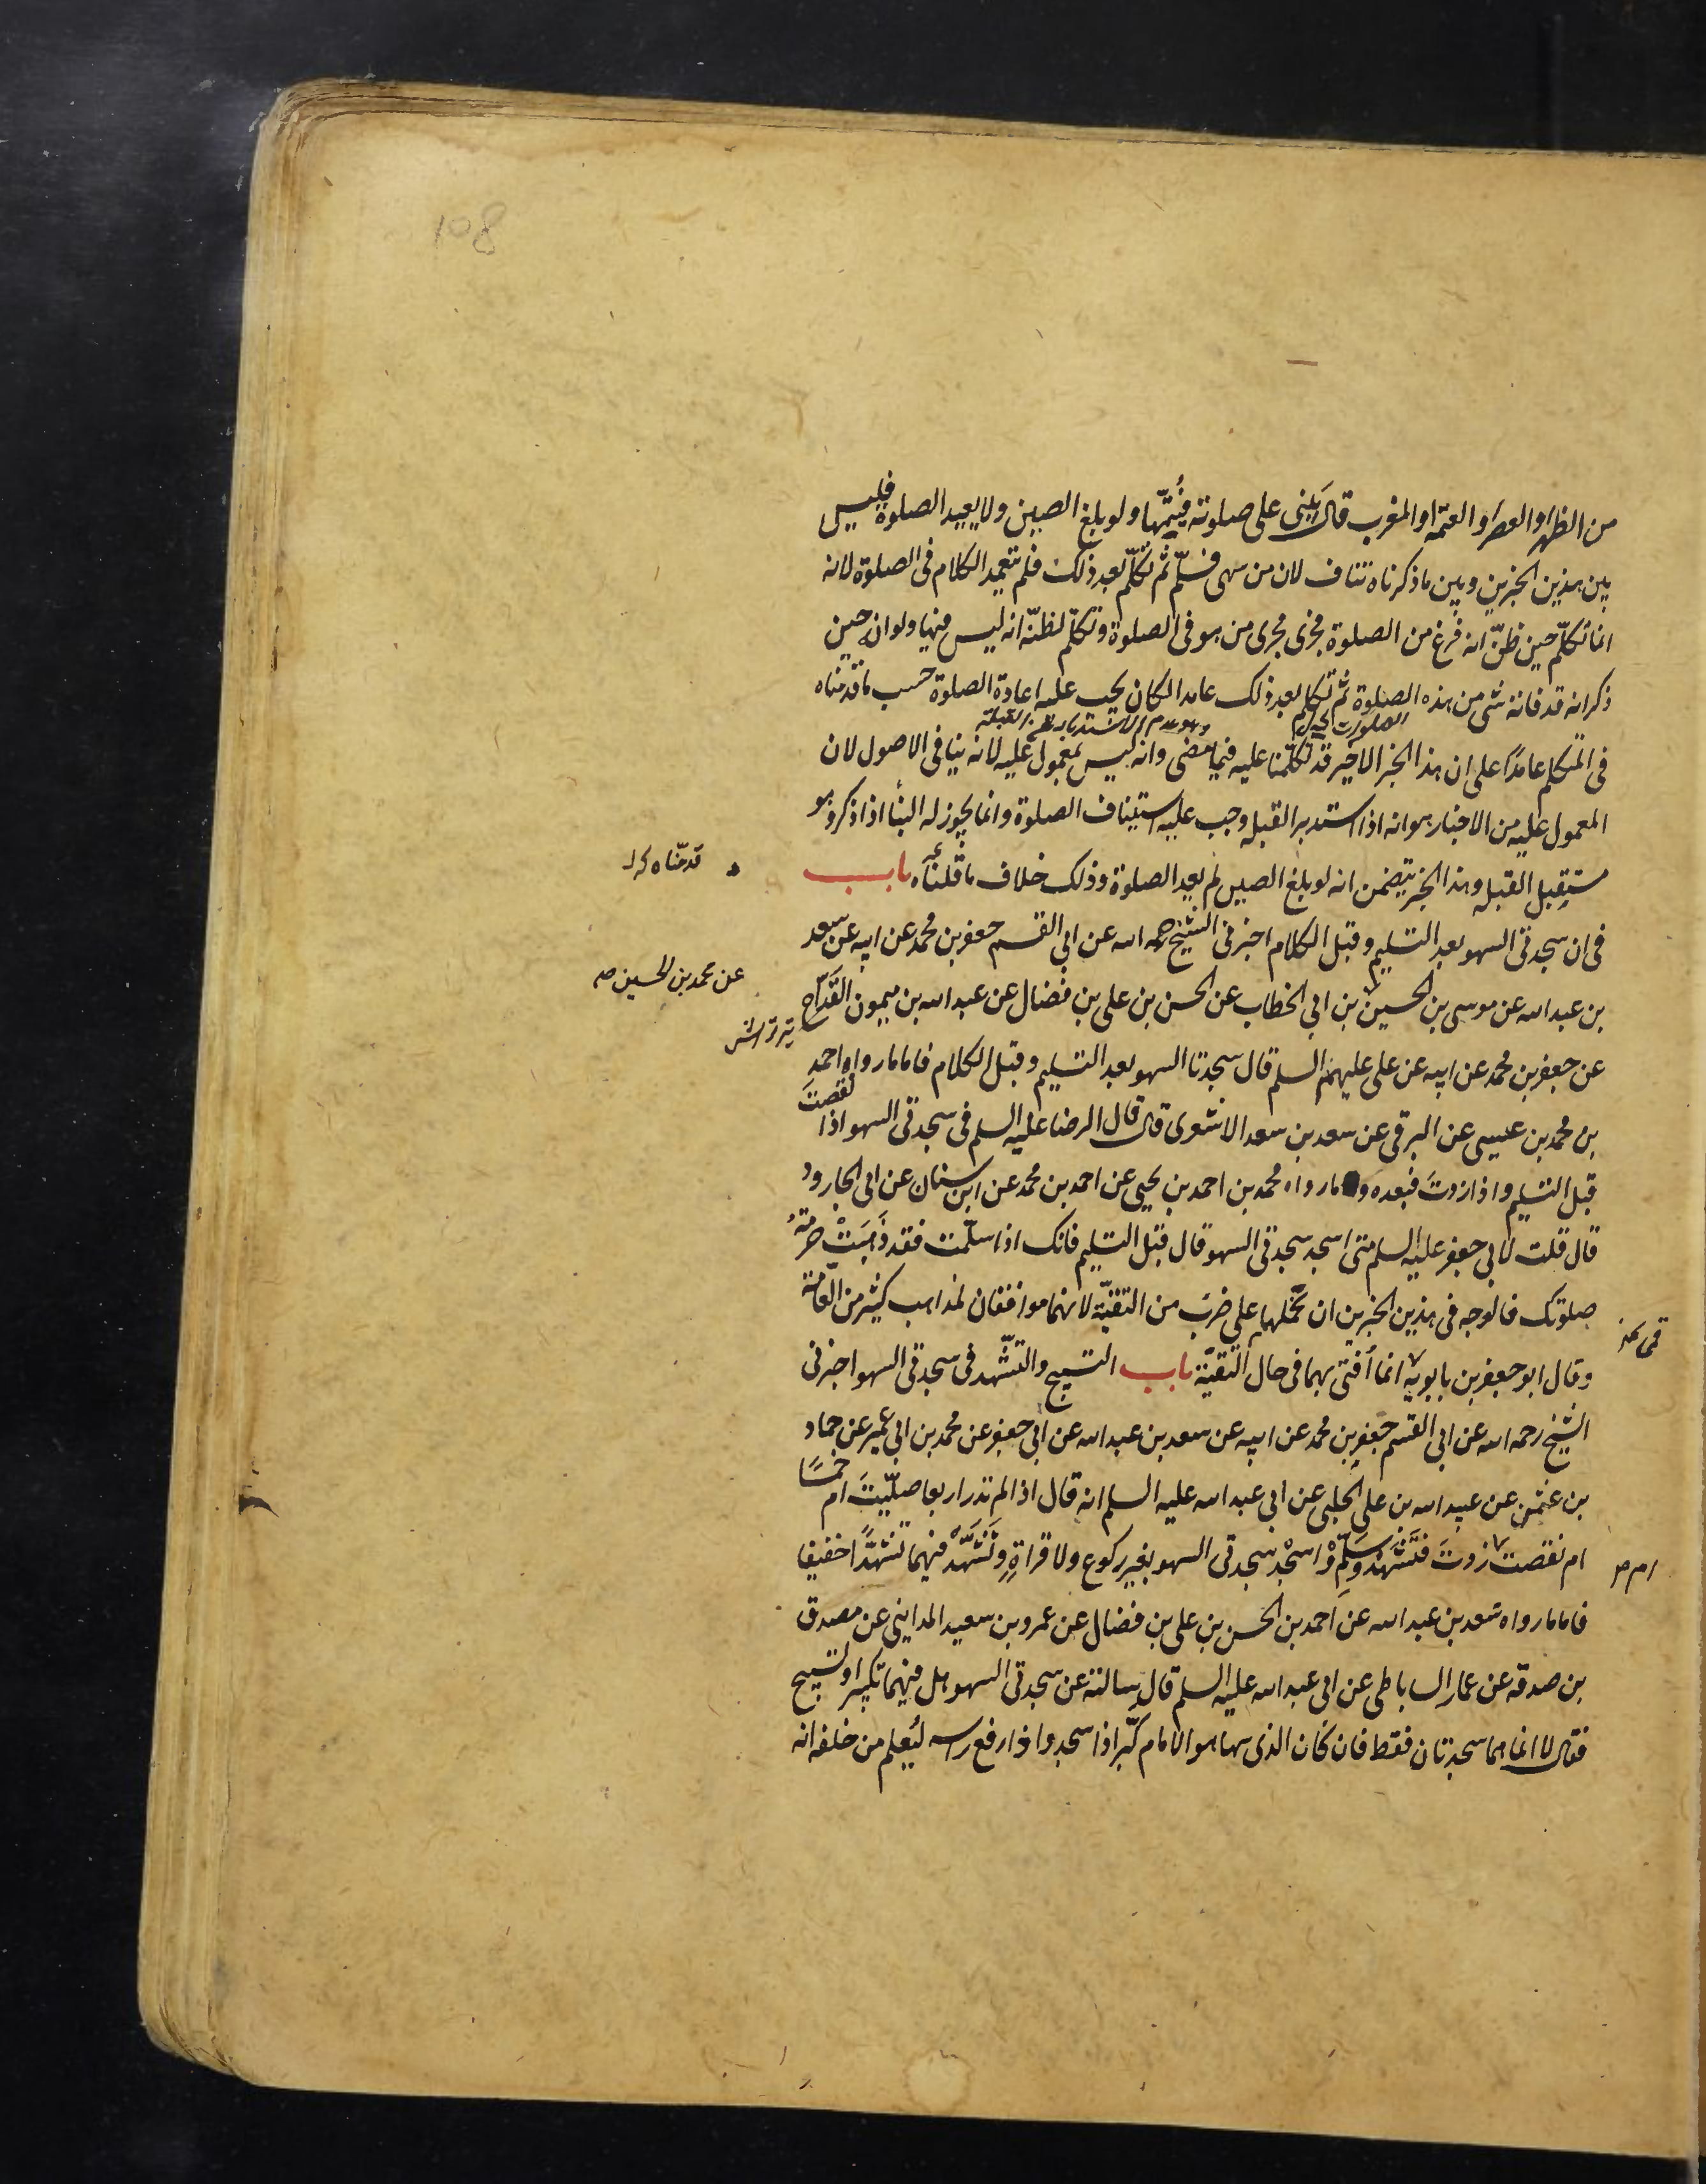 108
من الظهر او العصر او العتمة او المغرب قال يبنى على صلوته فيُتمّها ولو بلغ الصين ولا يعيد الصلوة فليس
بين هذين الخبرين وبين ما ذكرناه تناف لان من سهى فسلّم ثم تكلّم بعد ذلك فلم يتعمد الكلام فى الصلوة لانه
انما تكلّم حين ظنّ انه فرغ من الصلوة فجرى مجرى من هو فى الصلوة وتكلّم لظنّه انه ليس فيها ولو انه حين
ذكر انه قد فاته شى من هذه الصلوة ثم تكلم بعد ذلك عامدا لكان يجب عليه اعادة الصلوة حسب ما قدمناه
وهو عدم الاستدبار عن القبلة
فى المتكلم عامدًا على ان هذا الخبر الاخير قد تكلّمنا عليه فيما مضى وانه ليس بمعمول عليه لانه ينافى الاصول لان
المعمول عليه من الاخبار هو انه اذا استدبر القبله وجب عليه استيناف الصلوة وانما يجوز له البنأ اذا ذكر وهو
مستقبل القبله وهذا الخبر يتضمن انه لو بلغ الصين لم يعد الصلوة وذلك خلاف ما قلناه باب
قدمّناه
فى ان سجدتى السهو بعد التسليم وقبل الكلام اخبرنى الشيخ رحمه الله عن ابى القسم جعفر بن محمد عن ابيه عن سعد
بن عبد الله عن موسى بن الحسين بن ابى الخطاب عن الحسن بن على بن فضال عن عبد الله بن ميمون القدّاح
عن محمد بن الحسين صح
تير تراش
عن جعفر بن محمد عن ابيه عن على عليهم السلم قال سجدتا السهو بعد التسليم وقبل الكلام فاما ما رواه احمد
بن محمد بن عيسى عن البرقى عن سعد بن سعد الاشعرى قال قال الرضا عليه السلم فى سجدتى السهو اذا نقصتَ
قبل التسليم واذا زدتَ فبعده وما رواه محمد بن احمد بن يحيى عن احمد بن محمد عن ابن سنان عن ابى الجارود
قال قلت لابى جعفر عليه السلم متى اسجد سجدتى السهو قال قبل التسليم فانك اذا سلّمت فقد ذَهَبَتْ حرمةُ
صلوتك فالوجه فى هذين الخبرين ان نحملهما على ضرب من التقيّة لانهما موافقان لمذاهب كثير من العامّة
وقال ابو جعفر بن بابويه انما أفتى بهما فى حال التقيّة باب التسبيح والتشّهد فى سجدتى السهو اخبرنى
الشيخ رحمه الله عن ابى القسم جعفر بن محمد عن ابيه عن سعد بن عبد الله عن ابى جعفر عن محمد بن ابى عمير عن حماد
بن عثمن عن عبيد الله بن على الحلبى عن ابى عبد الله عليه السلم انه قال اذا لم تدر اربعا صلّيتَ ام خمسًا
ام نقصت زدتَ فتَشَهّدْ وسَلِّمْ وْاسْجُد سجدتى السهو بغير ركوع ولا قراةٍ وتَشَهَّدْ فيهما تشهدًا خفيفا
ام صح
فاما ما رواه سعد بن عبد الله عن احمد بن الحسن بن على بن فضال عن عمرو بن سعيد المداينى عن مصدق
بن صدقه عن عمار الساباطى عن ابى عبد الله عليه السلم قال سالته عن سجدتى السهو هل فيهما تكبير او تسبيح
فقال لا انما هما سجدتان فقط فان كان الذى سها هو الامام كبّر اذا سجد واذا رفع راسه ليُعلم من خلفه انه